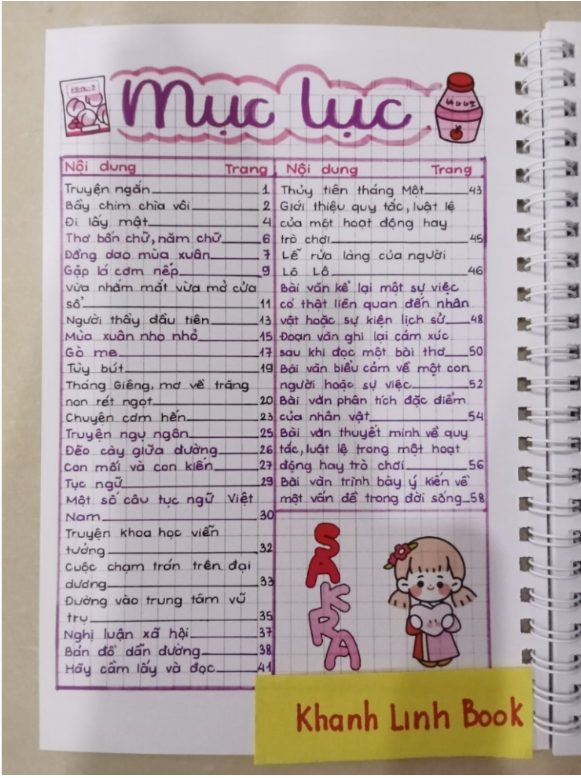 Mục lục
Nội dung Trang
Truyện ngắn 1
Bầy chim chìa vôi 2
Đi lấy mật 4
Thơ bốn chữ, năm chữ 6
Đồng dao mùa xuân 7
Gặp lá cơm nếp 9
Vừa nhắm mắt vừa mở cửa
sổ 11
Người thầy đầu tiên 13
Mùa xuân nho nhỏ 15
Gò me 17
Tùy bút 19
Tháng Giêng, mơ về trăng
non rét ngọt 20
Chuyện cơm hến 23
Truyện ngụ ngôn 25
Đẽo cày giữa đường 26
Con mối và con kiến 27
Tục ngữ 29
Một số câu tục ngữ Việt
Nam 30
Truyện khoa học viễn
tưởng 32
Cuộc chạm trán trên đại
dương 33
Đường vào trung tâm vũ
trụ 35
Nghị luận xã hội 37
Bản đồ dẫn đường 38
Hãy cầm lấy và đọc 41
Nội dung Trang
Thủy tiên tháng Một 43
Giới thiệu quy tắc, luật lệ
của một hoạt động hay
trò chơi 45
Lễ rửa làng của người
Lô Lô 46
Bài văn kể lại một sự việc
có thật liên quan đến nhân
vật hoặc sự kiện lịch sử 48
Đoạn văn ghi lại cảm xúc
sau khi đọc một bài thơ 50
Bài văn biểu cảm về một con
người hoặc sự việc 52
Bài văn phân tích đặc điểm
của nhân vật 54
Bài văn thuyết minh về quy
tắc, luật lệ trong một hoạt
động hay trò chơi 56
Bài văn trình bày ý kiến về
một vấn đề trong đời sống 58
SAKRA
Khanh Linh Book